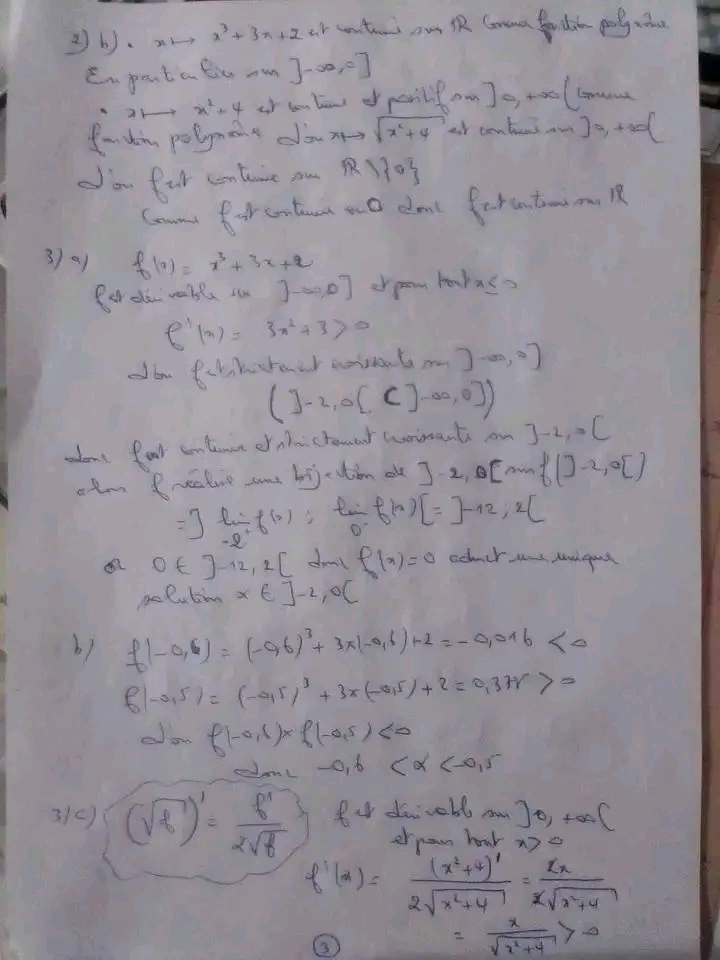 2) b) • x ↦ x³ + 3x + 2 est continue sur ℝ comme fonction polynôme
En particulier sur ]-∞, 0]
• x ↦ x² + 4 est continue et positif sur ]0, +∞( comme
fonction polynôme d'où x ↦ √(x²+4) est continue sur ]0, +∞(
d'où f est continue sur ℝ \ {0}
Comme f est continue en 0 donc f est continue sur ℝ
3) a) f(x) = x³ + 3x + 2
f est dérivable sur ]-∞, 0] et pour tout x ≤ 0
f'(x) = 3x² + 3 > 0
d'où f est strictement croissante sur ]-∞, 0]
(]-2, 0[ ⊂ ]-∞, 0])
donc f est continue et strictement croissante sur ]-2, 0[
alors f réalise une bijection de ]-2, 0[ sur f(]-2, 0[)
= ] lim f(x) ; lim f(x) [ = ]-12, 2[
-2⁺ 0⁻
or 0 ∈ ]-12, 2[ donc f(x) = 0 admet une unique
solution α ∈ ]-2, 0[
b) f(-0,6) = (-0,6)³ + 3x(-0,6) + 2 = -0,016 < 0
f(-0,5) = (-0,5)³ + 3x(-0,5) + 2 = 0,375 > 0
d'où f(-0,6) × f(-0,5) < 0
donc -0,6 < α < -0,5
3/c) (√f)' = f' / 2√f f est dérivable sur ]0, +∞(
et pour tout x > 0
f'(x) = (x²+4)' / 2√(x²+4) = 2x / 2√(x²+4)
= x / √(x²+4) > 0
3